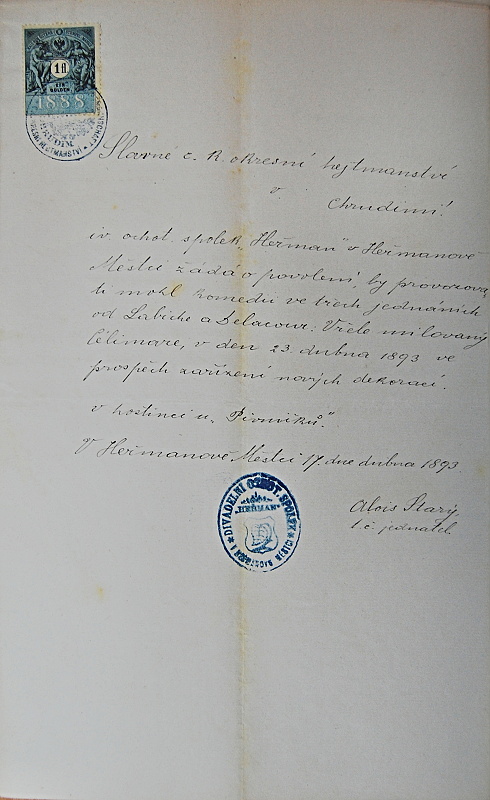 1 fl
EIN
GULDEN
1888
CHRUDIM
Slavné c. k. okresní hejtmanství
v
Chrudimi!
div. ochot. spolek „Heřman“ v Heřmanově
Městci žádá o povolení, by provozova-
ti mohl komedii ve třech jednáních
od Labiche a Delacour: Vřele milovaný
Célimare, v den 23. dubna 1893 ve
prospěch zařízení nových dekorací.
v hostinci u „Pivničků“.
V Heřmanově Městci 17. dne dubna 1893
Alois Starý,
t. č. jednatel.
DIVADELNÍ OCHOT. SPOLEK
„HEŘMAN“
V HEŘMANOVĚ MĚSTCI